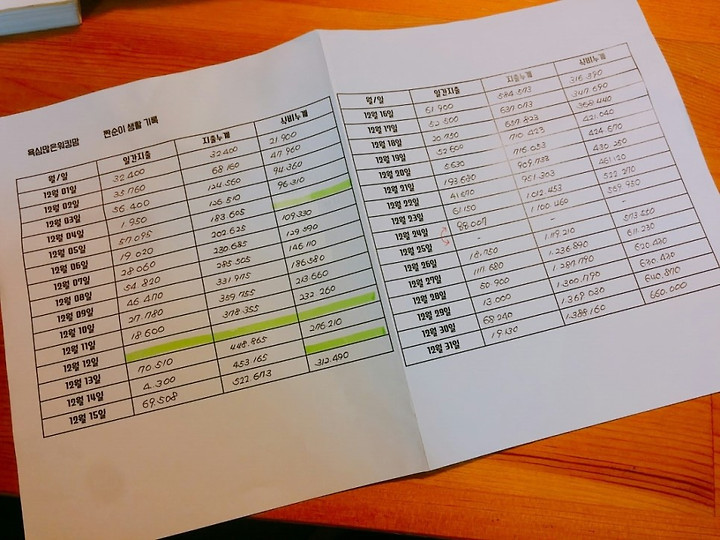 욕심많은워킹맘 짠순이 생활 기록
월/일 일간지출 지출누계 식비누계
12월 01일 32.400 32.400 21.900
12월 02일 35.760 68.160 47.960
12월 03일 56.400 124.560 94.360
12월 04일 1.950 126.510 96.310
12월 05일 57.095 183.605
12월 06일 19.020 202.625 109.330
12월 07일 28.060 230.685 129.390
12월 08일 54.820 285.505 146.110
12월 09일 46.470 331.975 186.580
12월 10일 27.780 359.755 213.660
12월 11일 18.600 378.355 232.260
12월 12일
12월 13일 70.510 448.865 276.210
12월 14일 4.300 453.165
12월 15일 69.508 522.673 312.490
월/일 일간지출 지출누계 식비누계
12월 16일 61.900 584.573 316.390
12월 17일 52.500 637.073 347.690
12월 18일 20.750 657.823 368.440
12월 19일 52.600 710.423 421.040
12월 20일 5.630 716.053 424.670
12월 21일 193.680 909.733 430.350
12월 22일 41.570 951.303 461.120
12월 23일 61.150 1.012.453 522.270
12월 24일 88.007 1.100.460 559.930
12월 25일 - -
12월 26일 18.750 1.119.210 573.450
12월 27일 117.680 1.236.890 611.230
12월 28일 50.900 1.287.790 620.430
12월 29일 13.000 1.300.790 630.430
12월 30일 68.240 1.369.030 640.870
12월 31일 19.130 1.388.160 660.000